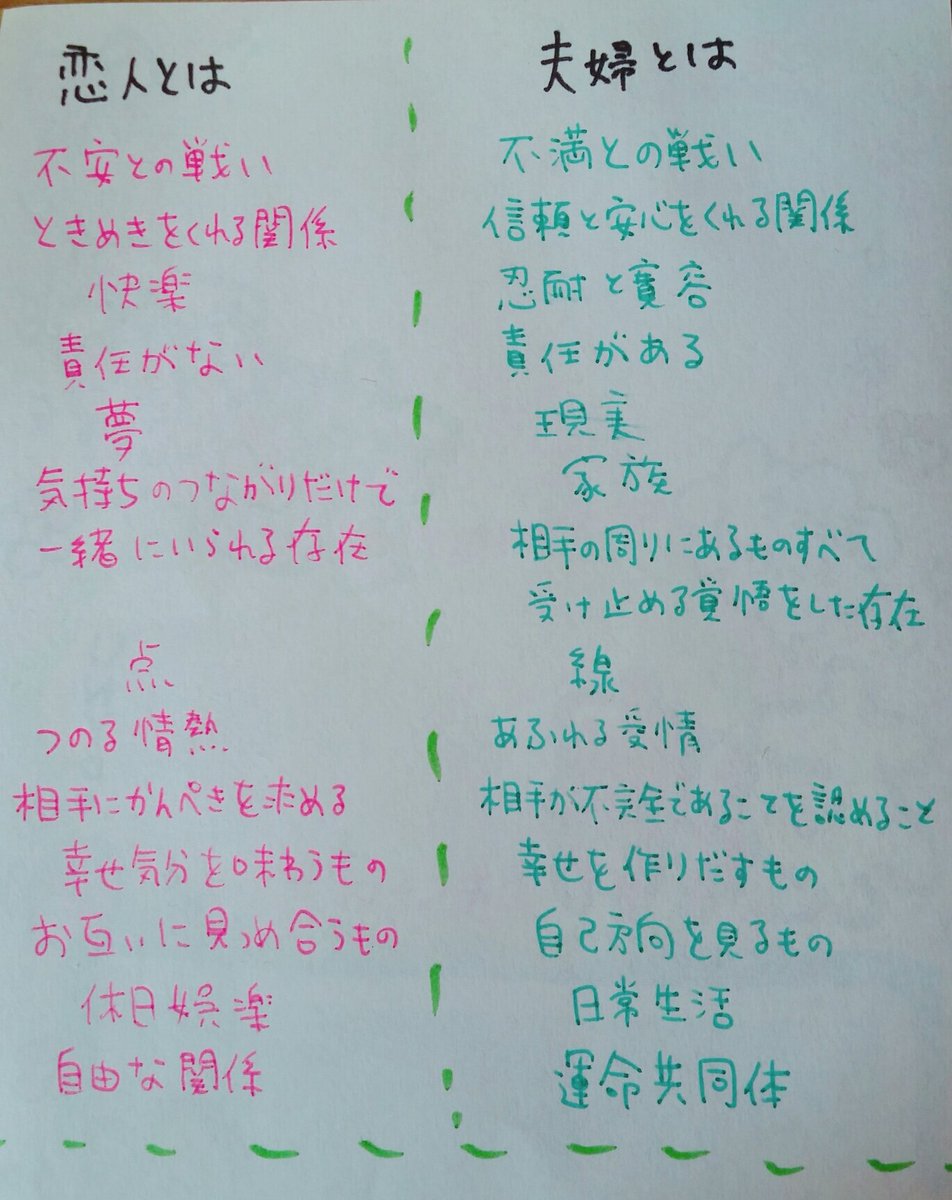 恋人とは
不安との戦い
ときめきをくれる関係
快楽
責任がない
夢
気持ちのつながりだけで
一緒にいられる存在
点
つのる情熱
相手にかんぺきを求める
幸せ気分を味わうもの
お互いに見つめ合うもの
休日娯楽
自由な関係
夫婦とは
不満との戦い
信頼と安心をくれる関係
忍耐と寛容
責任がある
現実
家族
相手の周りにあるものすべて
受け止める覚悟をした存在
線
あふれる愛情
相手が不完全であることを認めること
幸せを作りだすもの
自己方向を見るもの
日常生活
運命共同体